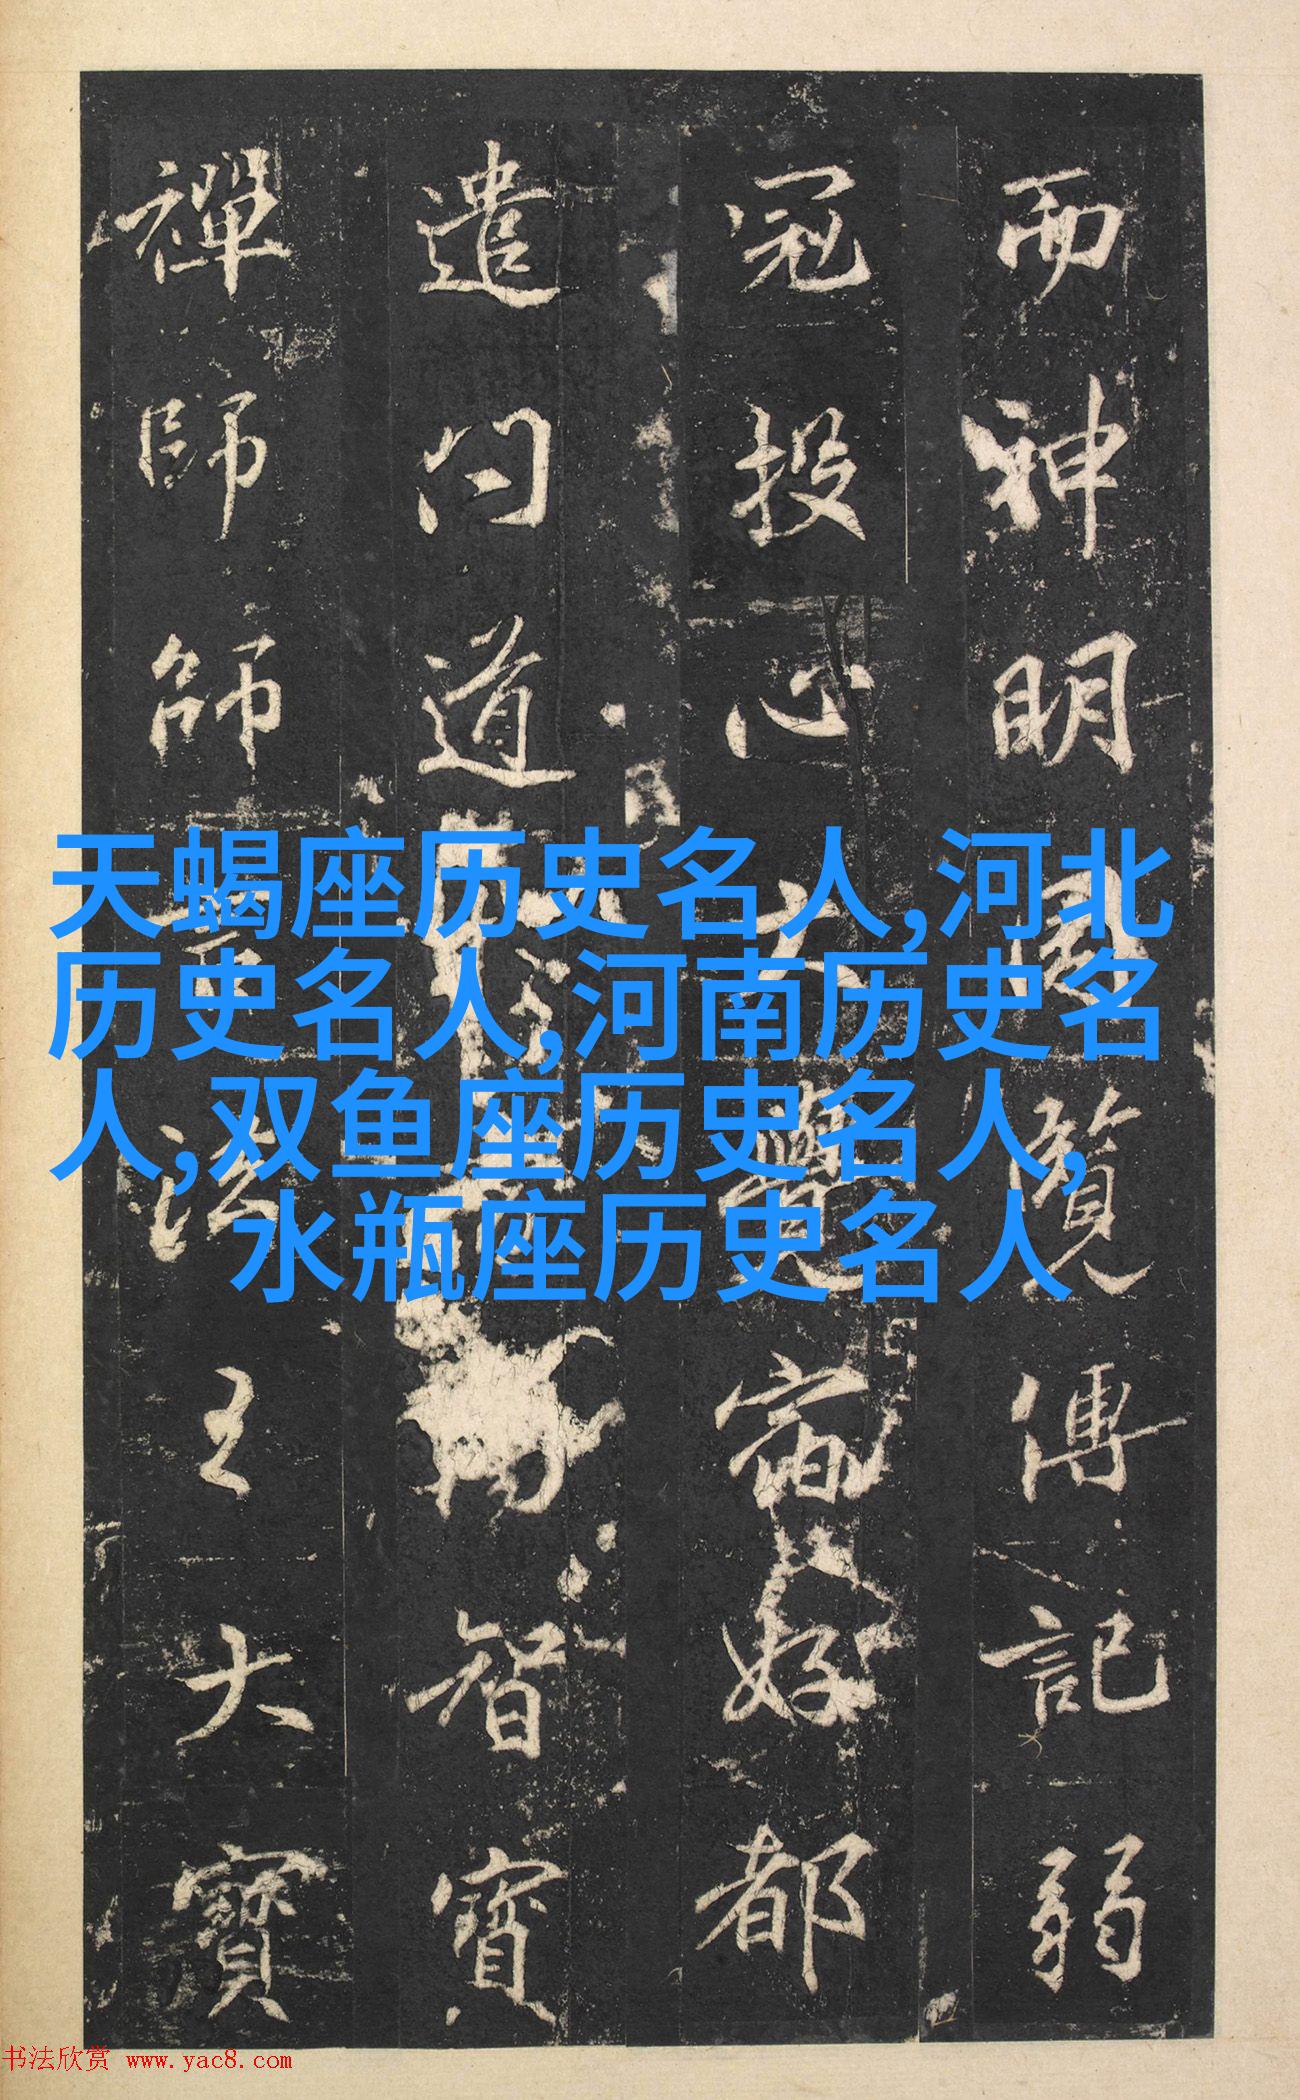 而神明覽傳記弱
冠投心好都
遣問道智寶
禪師師法王大寶
天蝎座历史名人,河北
历史名人,河南历史名
人,双鱼座历史名人,
水瓶座历史名人
书法欣赏 www.yac8.com